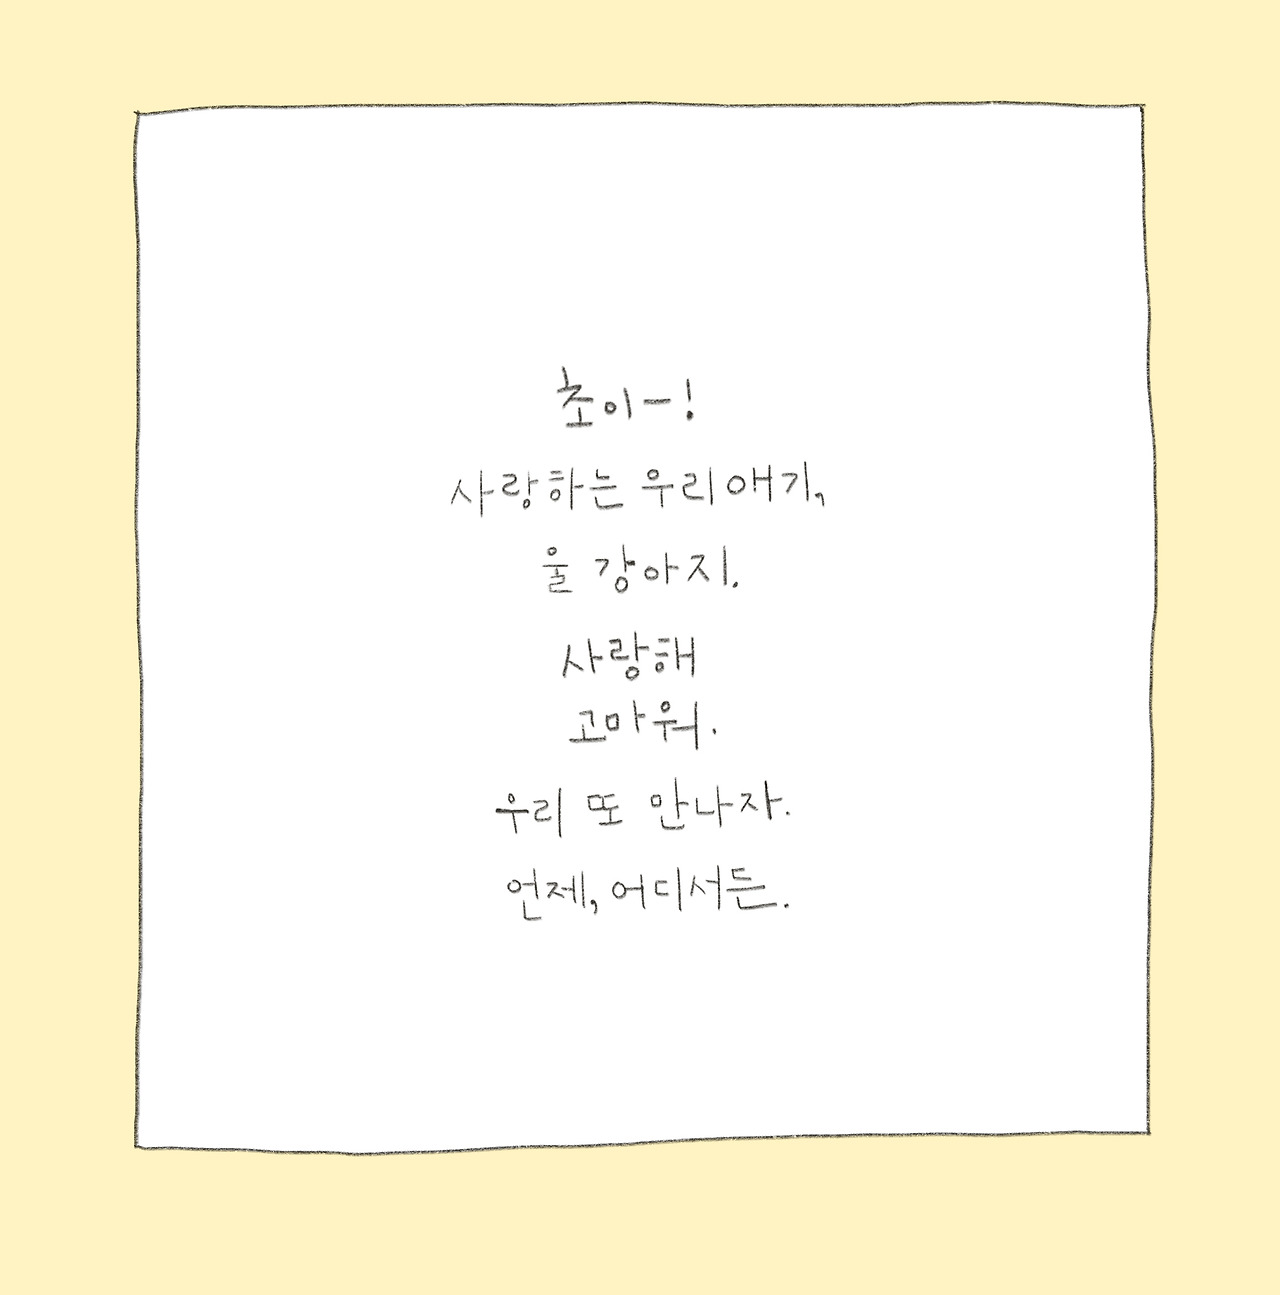 초이-!
사랑하는 우리 애기,
울 강아지.
사랑해
고마워.
우리 또 만나자.
언제, 어디서든.